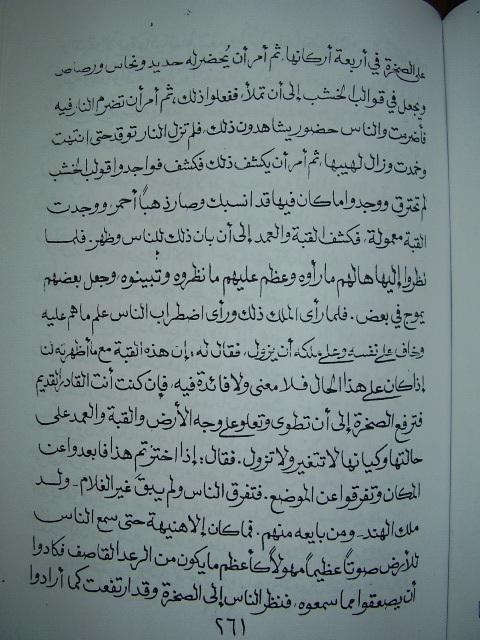 على الصخرة في أربعة أركانها، ثم أمر أن يُحضر له حديد ونحاس ورصاص
ويجعل في قوالب الخشب إلى أن تملأ، ففعلوا ذلك، ثم أمر أن تضرم النار فيه
فأضرمت والناس حضور يشاهدون ذلك، فلم تزل النار توقد حتى انتهت
وخمدت وزال لهيبها، ثم أمر أن يكشف ذلك فكشف فواجدوا قوالب الخشب
لم تحترق ووجدوا ما كان فيها قد انسبك وصار ذهباً أحمر ووجدت
القبة معمولة، فكشف القبة والعمد إلى أن بان ذلك للناس وظهر. فلما
نظروا إليها هالهم ما رأوه وعظم عليهم ما نظروه وتبينوه، وجعل بعضهم
يموج في بعض. فلما رأى الملك ذلك ورأى اضطراب الناس علم ما هم عليه
وخاف على نفسه وعلى ملكه أن يزول، فقال له: إن هذه القبة مع ما أظهرته لنا
إذا كان على هذا الحال فلا معنى ولا فائدة فيه، فإن كنت أنت القادر القديم
فترفع الصخرة إلى أن تطوى وتعلو على وجه الأرض والقبة والعمد على
حالتها وكيانها لا تتغير ولا تزول. فقال: إذا اخترتم هذا فابعدوا عن
المكان وتفرقوا عن الموضع. فتفرق الناس ولم يبق غير الغلام - ولد
ملك الهند - ومن بايعه منهم. فما كان إلا هنيهة حتى سمع الناس
للأرض صوتاً عظيماً مهولاً كأعظم ما يكون من الرعد القاصف فكادوا
أن يصعقوا مما سمعوه، فنظر الناس إلى الصخرة وقد ارتفعت كما أرادوا
٢٦١